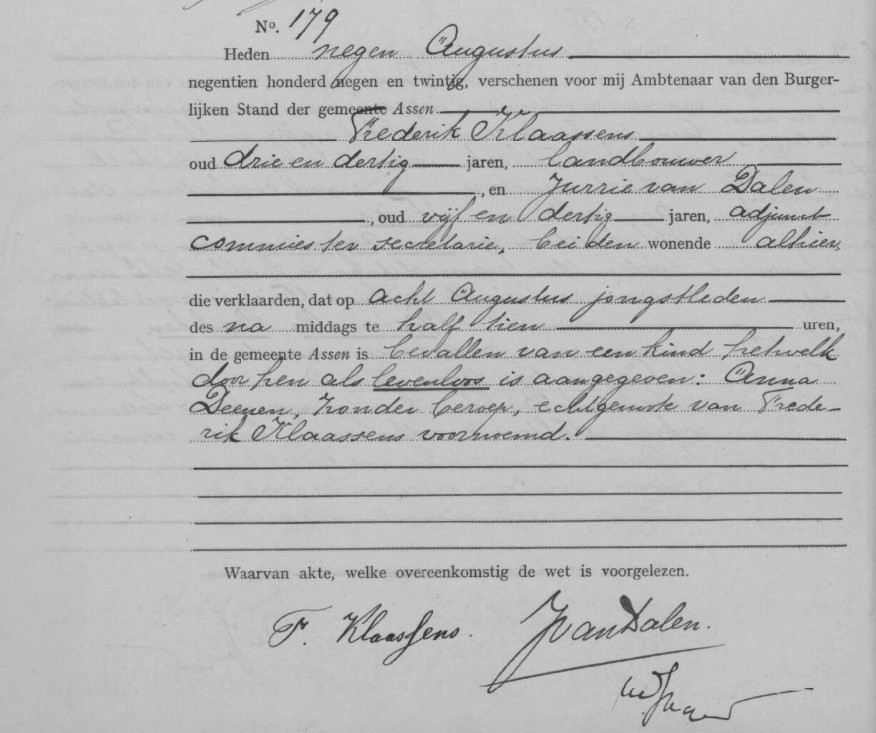 No. 179
Heden negen Augustus
negentien honderd negen en twintig, verschenen voor mij Ambtenaar van den Burger-
lijken Stand der gemeente Assen
Frederik Klaassens
oud drie en dertig jaren, landbouwer
, en Jurrie van Dalen
, oud vijf en dertig jaren, adjunct
commies ter secretarie, beiden wonende alhier,
die verklaarden, dat op acht Augustus jongstleden
des na middags te half tien uren,
in de gemeente Assen is bevallen van een kind hetwelk
door hen als levenloos is aangegeven: Anna
Deenen, zonder beroep, echtgenote van Frede-
rik Klaassens voornoemd.
Waarvan akte, welke overeenkomstig de wet is voorgelezen.
F. Klaassens. JvanDalen.